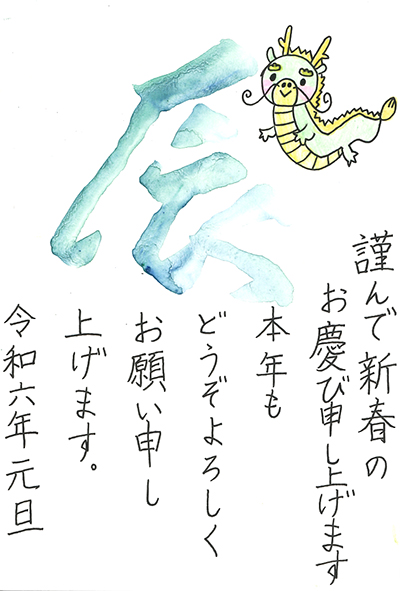 辰
謹んで新春の
お慶び申し上げます
本年も
どうぞよろしく
お願い申し
上げます。
令和六年元旦